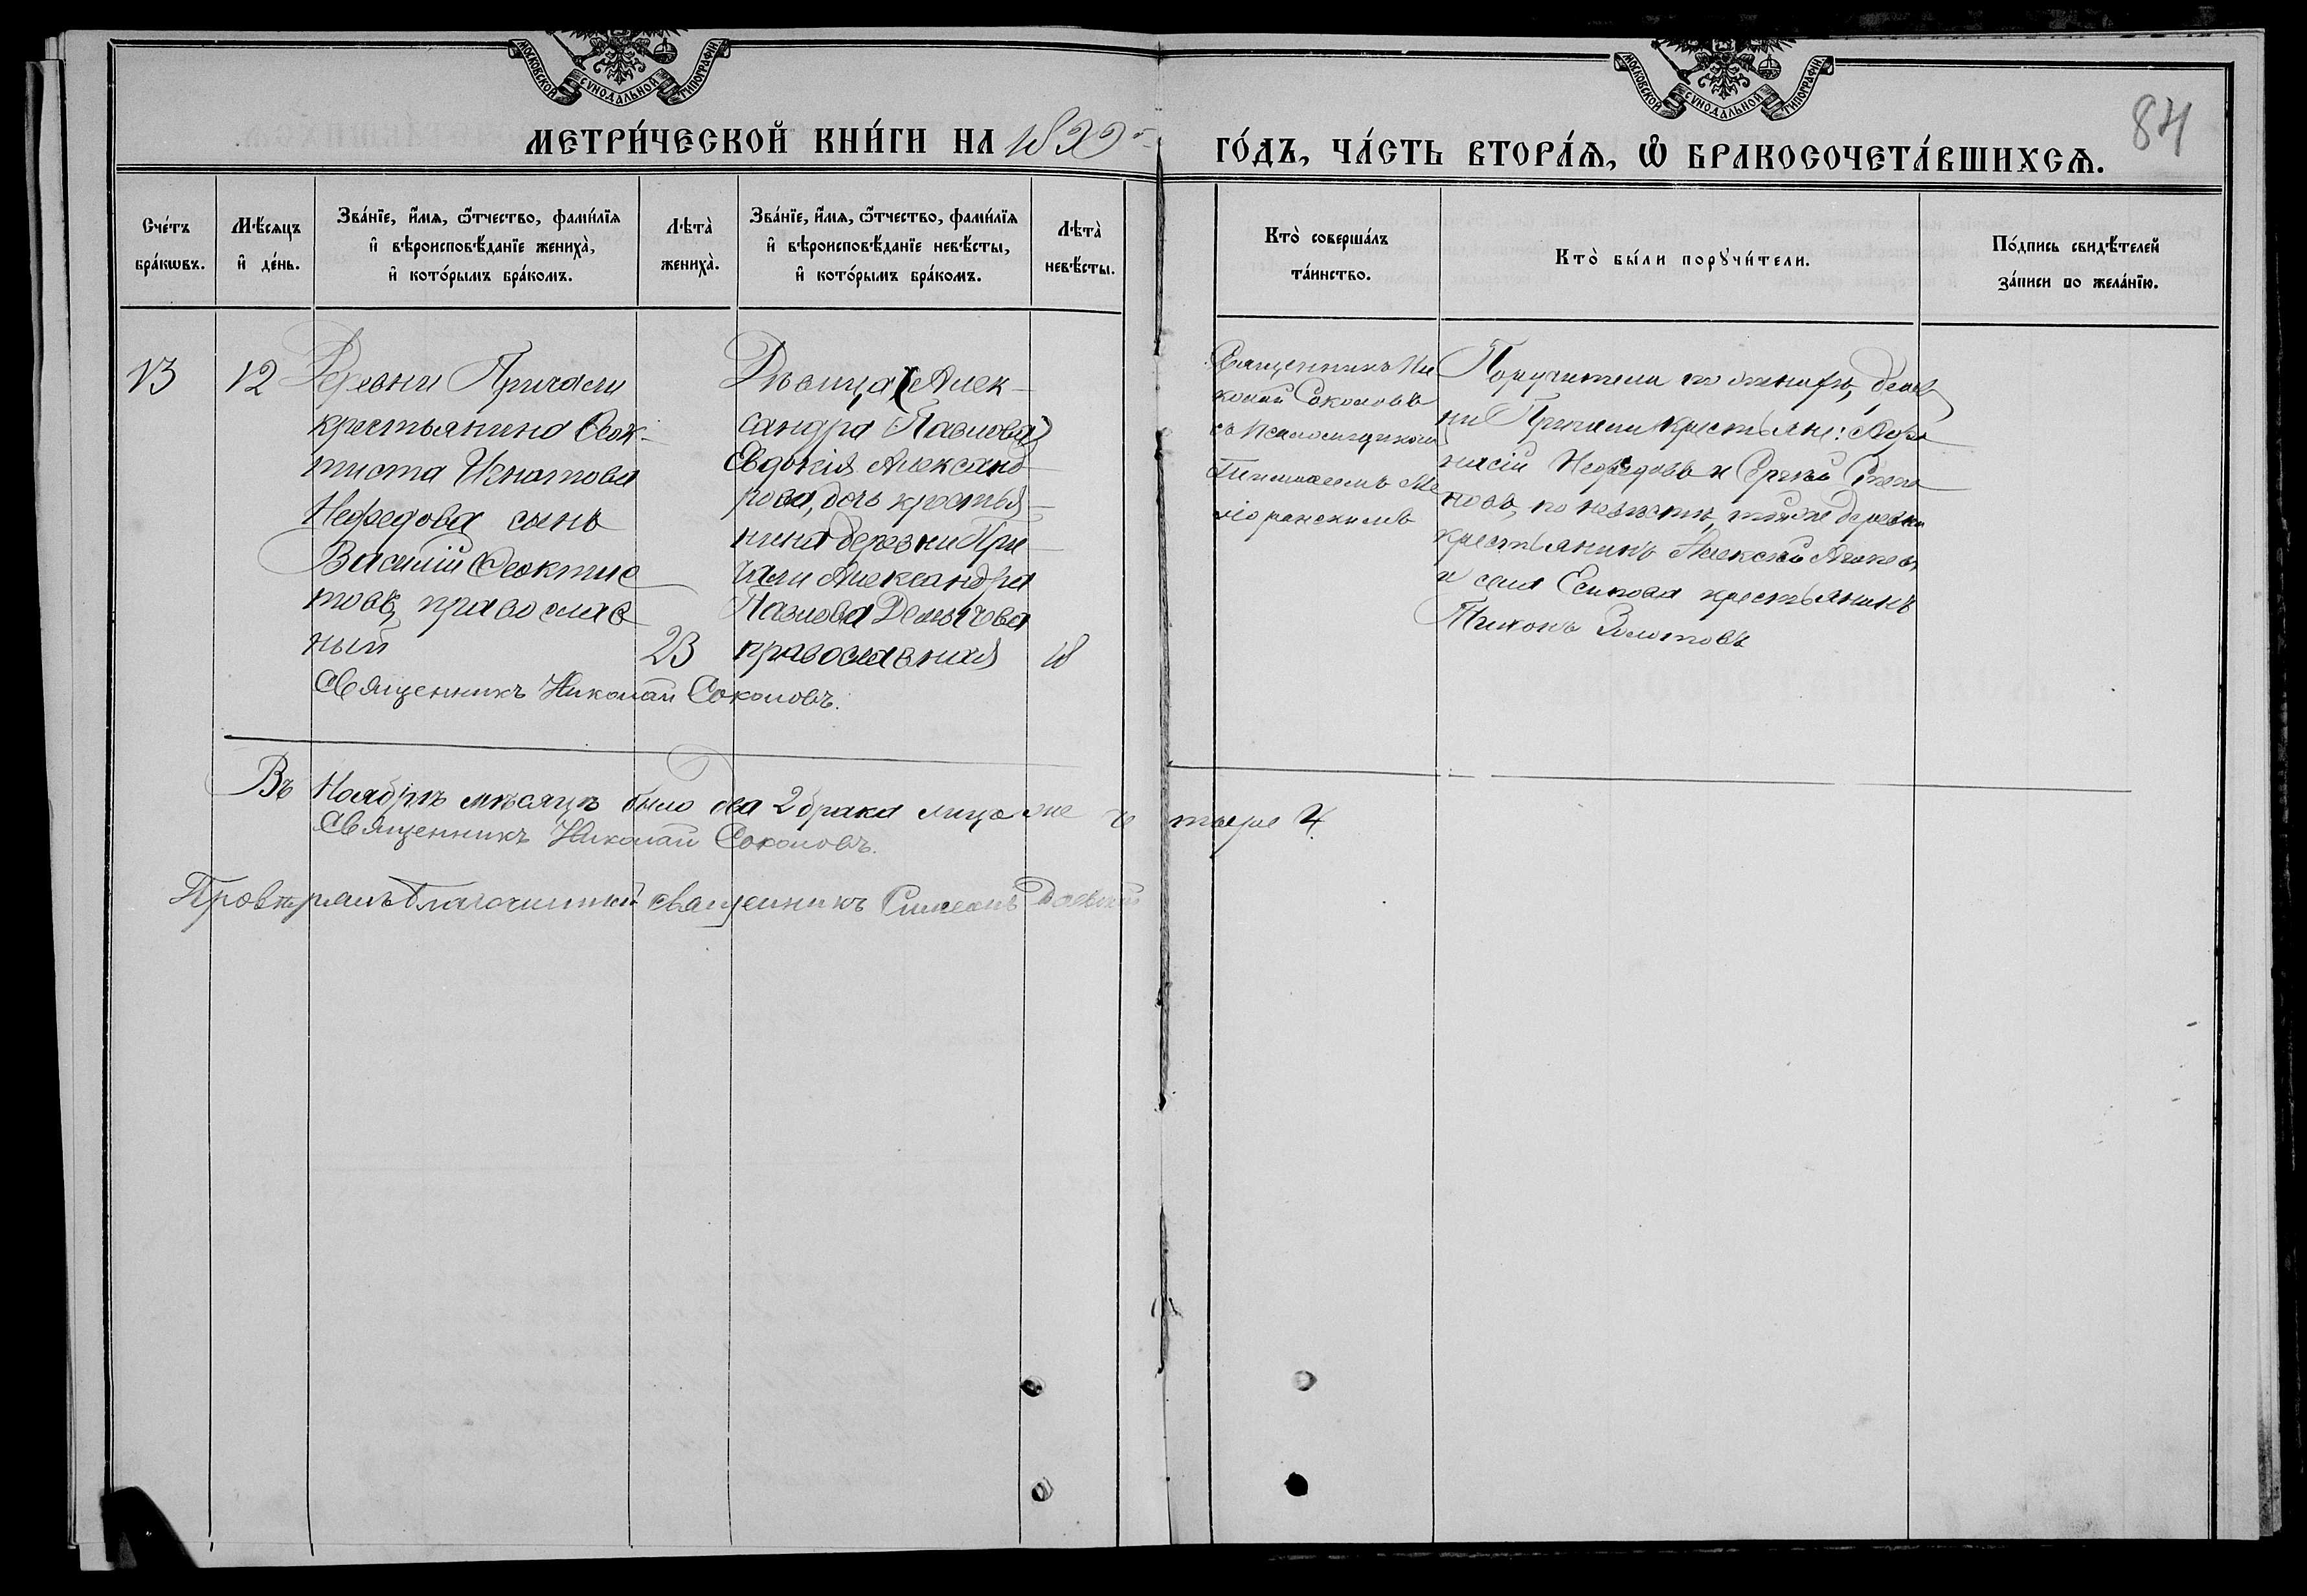 МОСКОВСКОЙ СѴНОДАЛЬНОЙ ТИПОГРАФІИ
МОСКОВСКОЙ СѴНОДАЛЬНОЙ ТИПОГРАФІИ
84
МЕТРИ́ЧЕСКОЙ КНИ́ГИ НА 1899 г.
ГО́ДЪ, ЧА́СТЬ ВТОРА́Ѧ, Ѡ҆ БРАКОСОЧЕТА́ВШИХСѦ.
Сче́тъ
бра́кѡвъ.
Мѣ́сяцъ
и҆ де́нь.
Зва́нїе, и҆́мѧ, ѻ҆́тчество, фами́лїѧ
и҆ вѣроисповѣ́данїе жениха̀,
и҆ кото́рымъ бра́комъ.
Лѣта̀
жениха̀.
Зва́нїе, и҆́мѧ, ѻ҆́тчество, фами́лїѧ
и҆ вѣроисповѣ́данїе невѣ́сты,
и҆ кото́рымъ бра́комъ.
Лѣта̀
невѣ́сты.
Кто̀ соверша́лъ
та́инство.
Кто̀ бы́ли порꙋчи́тели.
По́дпись свидѣ́телей
за́писи по жела́нїю.
13
12
Деревни Причали
крестьянина Ѳеок-
тиста Игнатова
Нефедова сынъ
Василій Ѳеоктис
товъ, православ
ный
23
Дѣвица (Алек-
сандра Павлова)
Евдокія Александ-
рова, дочь крестья-
нина деревни При-
чали Александра
Павлова
православная
18
Священникъ Николай Соколовъ.
Священникъ Ни
колай Соколовъ
съ псаломщикомъ
Поручители по женихѣ, дерев
ни Причали крестьяне: Афа
насій Нефедовъ и Сергѣй Степа
новъ, по невѣстѣ, тойже деревни
крестьянинъ Алексѣй
и села Есипова крестьянинъ
Тихонъ Золотовъ
Въ Ноябрѣ мѣсяцѣ было два 2 брака лицъ же че тыре 4.
Священникъ Николай Соколовъ.
Провѣрялъ Благочинный священникъ Симеонъ